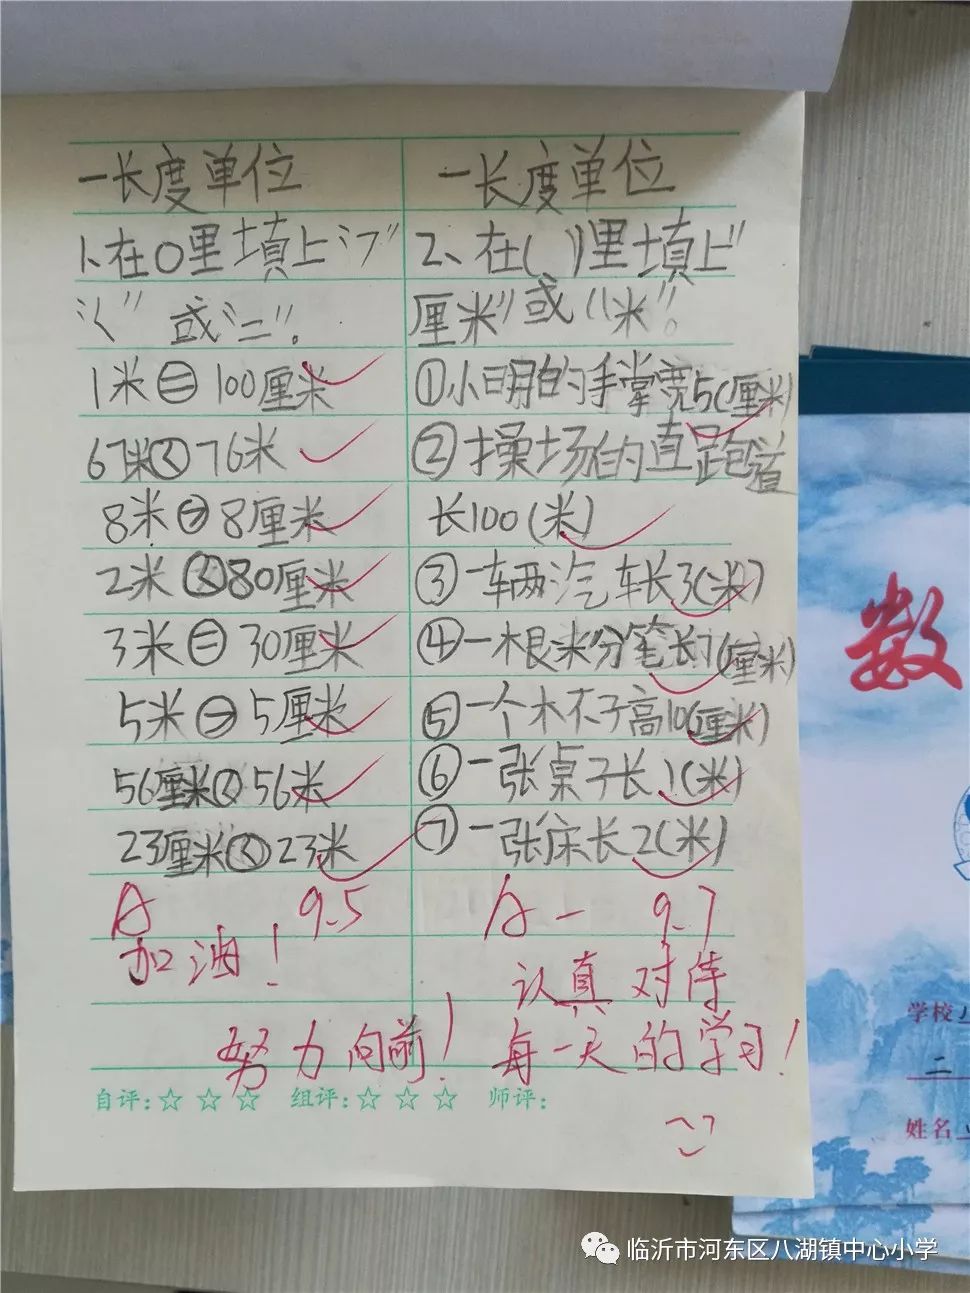 一长度单位
1、在○里填上“>”
“<”或“=”。
1米＝100厘米
67米<76米
8米>8厘米
2米>80厘米
3米＝30厘米
5米>5厘米
56厘米<56米
23厘米<23米
A 9.5
加油！
努力向前！
一长度单位
2、在( )里填上“
厘米”或“米”。
①小明的手掌宽5(厘米)
②操场的直跑道
长100(米)
③一车两汽车长3(米)
④一根米分笔长7(厘米)
⑤一个木不子高10(厘米)
⑥一张桌子长1(米)
⑦一张床长2(米)
A- 9.7
认真对待
每一天的学习！
自评：☆ ☆ ☆ 组评：☆ ☆ ☆ 师评：
数
学校
二
姓名
临沂市河东区八湖镇中心小学